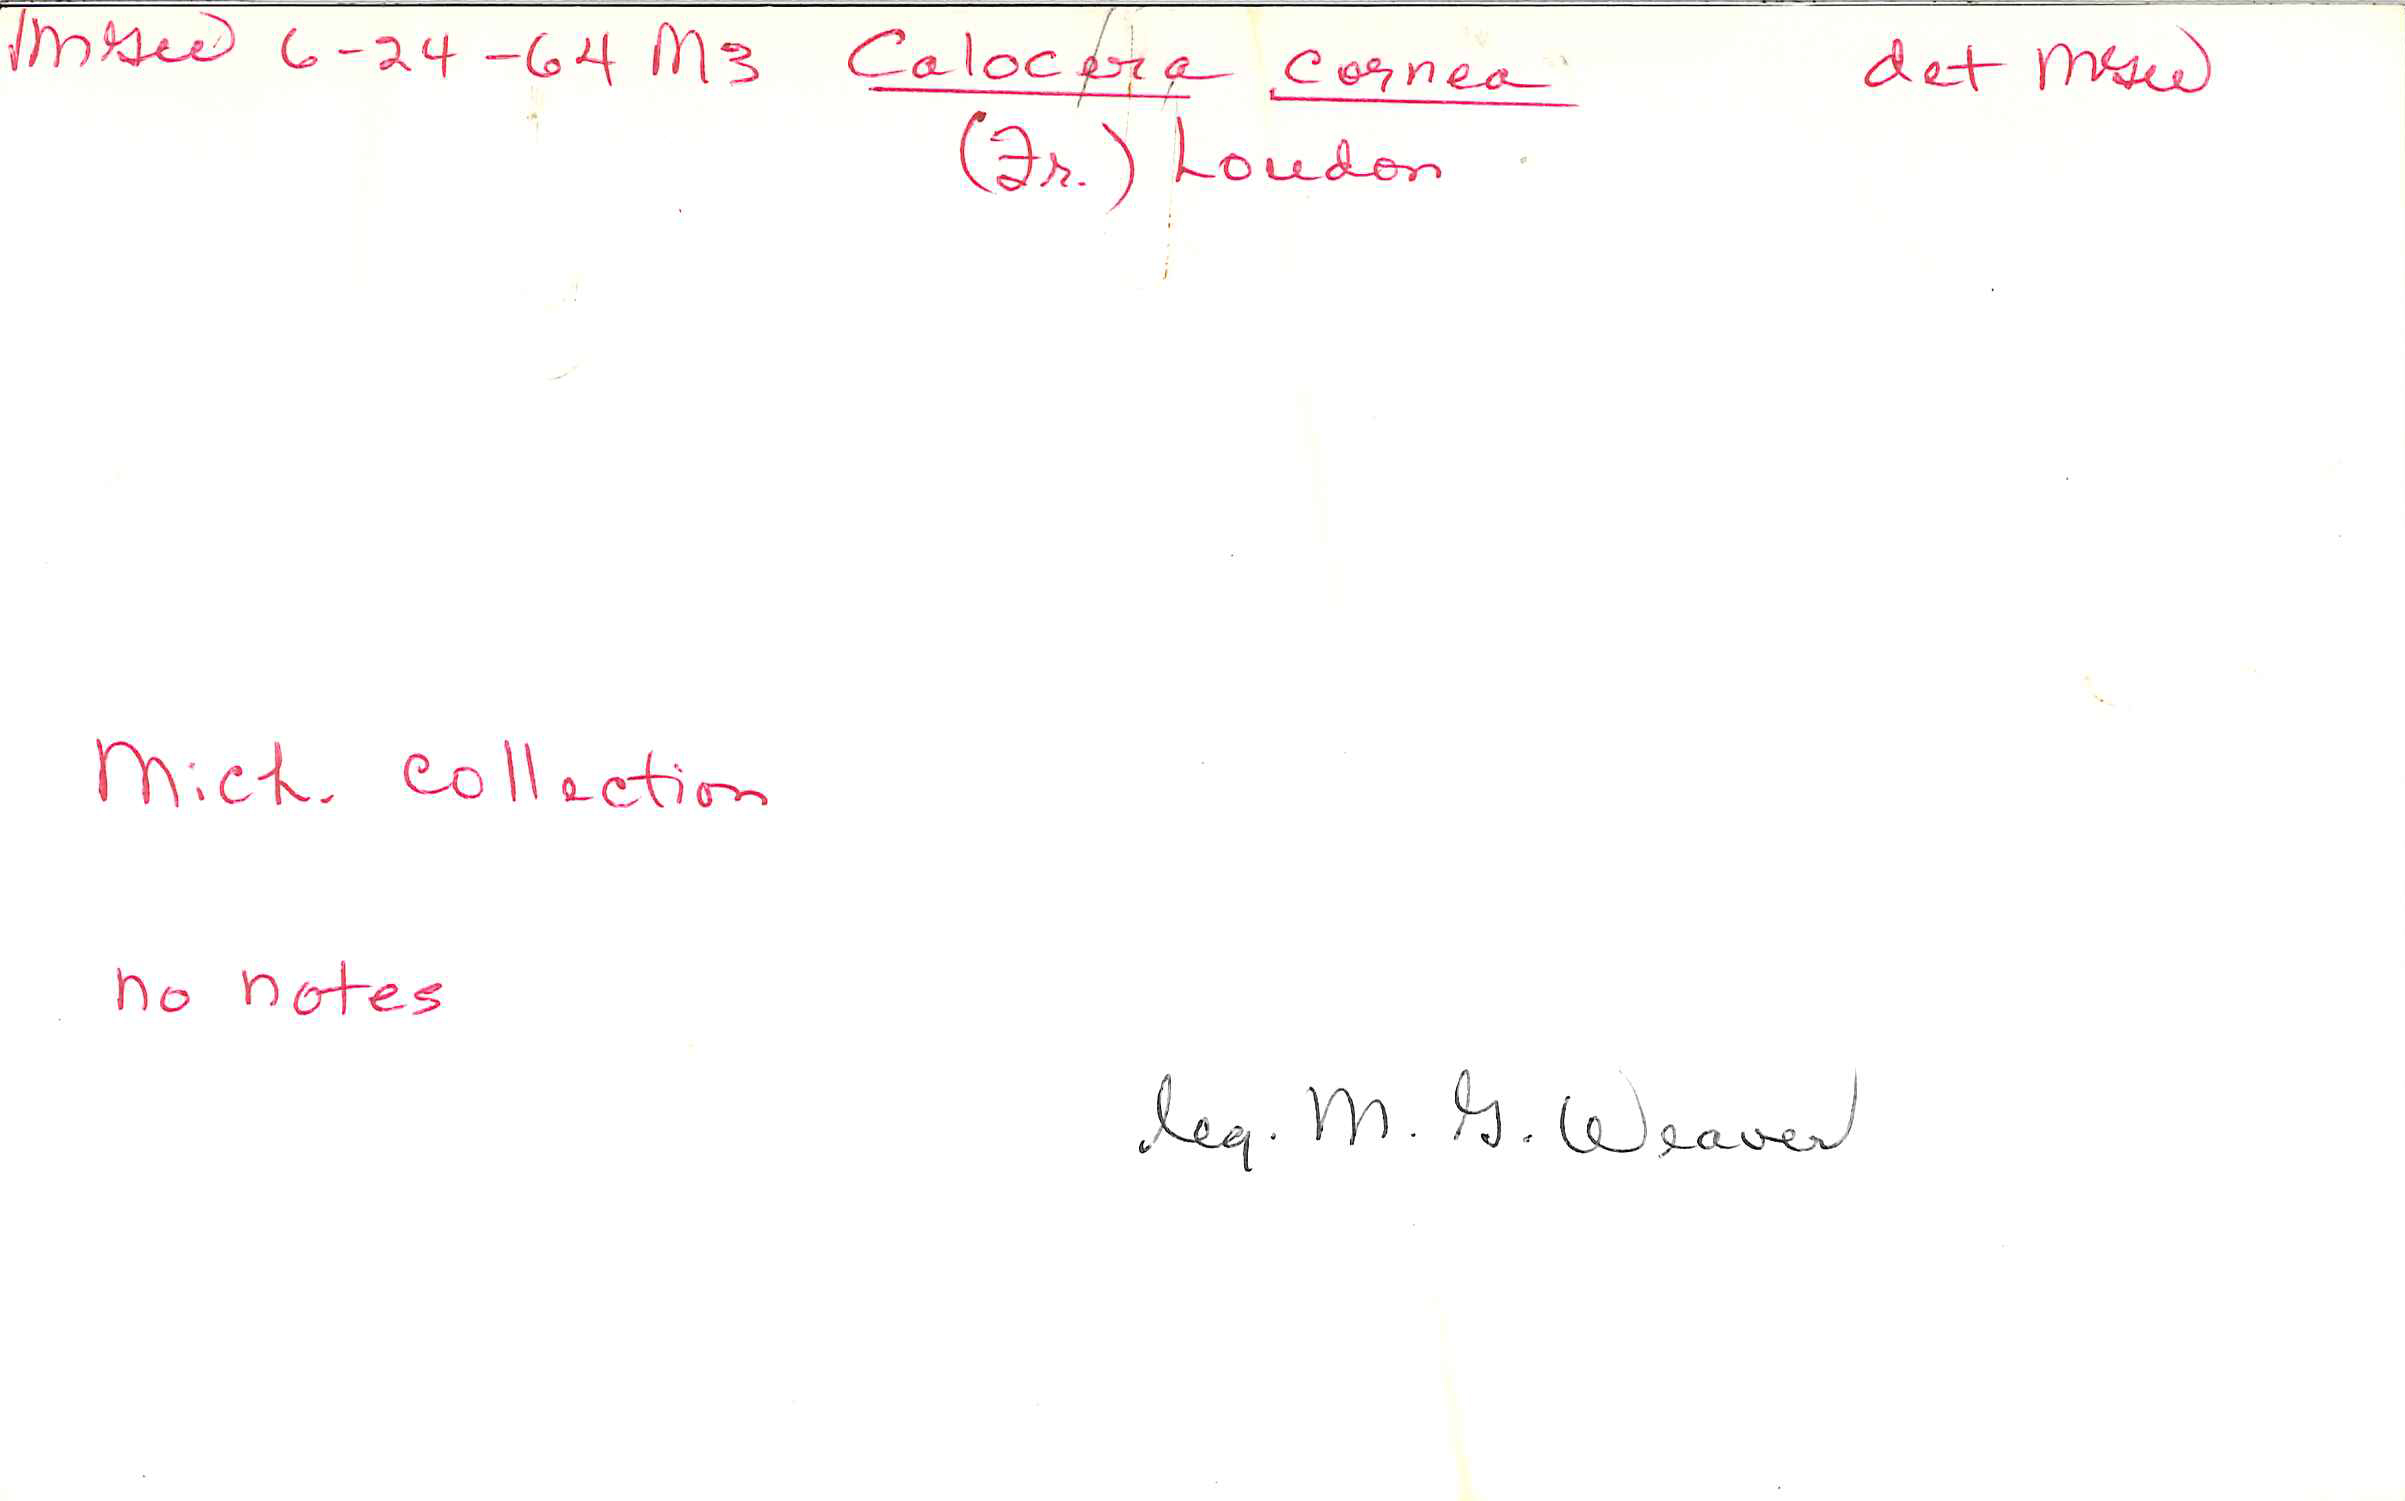 MGW 6-24-64 M3 Calocera cornea det MGW
(Fr.) Loudon
Mich. collection
no notes
leg. M. G. Weaver